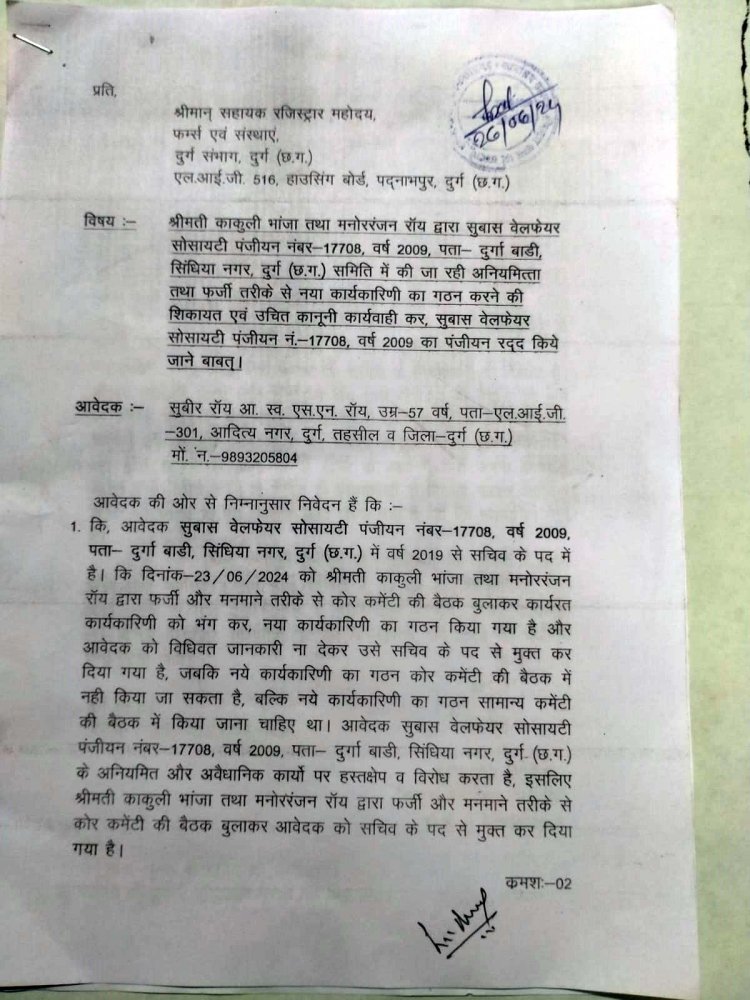 प्रति,
श्रीमान् सहायक रजिस्ट्रार महोदय,
फर्म्स एवं संस्थाएं,
दुर्ग संभाग, दुर्ग (छ.ग.)
एल.आई.जी. 516, हाउसिंग बोर्ड, पद्नाभपुर, दुर्ग (छ.ग.)
26/06/24
विषय :– श्रीमती काकुली भांजा तथा मनोररंजन रॉय द्वारा सुबास वेलफेयर
सोसायटी पंजीयन नंबर–17708, वर्ष 2009, पता– दुर्गा बाडी,
सिंधिया नगर, दुर्ग (छ.ग.) समिति में की जा रही अनियमित्ता
तथा फर्जी तरीके से नया कार्यकारिणी का गठन करने की
शिकायत एवं उचित कानूनी कार्यवाही कर, सुबास वेलफेयर
सोसायटी पंजीयन नं.–17708, वर्ष 2009 का पंजीयन रद्द किये
जाने बाबत्।
आवेदक :– सुबीर रॉय आ. स्व. एस.एन. रॉय, उम्र–57 वर्ष, पता–एल.आई.जी.
–301, आदित्य नगर, दुर्ग, तहसील व जिला–दुर्ग (छ.ग.)
मों. न.–9893205804
आवेदक की ओर से निम्नानुसार निवेदन हैं कि :–
1. कि, आवेदक सुबास वेलफेयर सोसायटी पंजीयन नंबर–17708, वर्ष 2009,
पता– दुर्गा बाडी, सिंधिया नगर, दुर्ग (छ.ग.) में वर्ष 2019 से सचिव के पद में
है। कि दिनांक–23/06/2024 को श्रीमती काकुली भांजा तथा मनोररंजन
रॉय द्वारा फर्जी और मनमाने तरीके से कोर कमेंटी की बैठक बुलाकर कार्यरत
कार्यकारिणी को भंग कर, नया कार्यकारिणी का गठन किया गया है और
आवेदक को विधिवत जानकारी ना देकर उसे सचिव के पद से मुक्त कर
दिया गया है, जबकि नये कार्यकारिणी का गठन कोर कमेंटी की बैठक में
नही किया जा सकता है, बल्कि नये कार्यकारिणी का गठन सामान्य कमेंटी
की बैठक में किया जाना चाहिए था। आवेदक सुबास वेलफेयर सोसायटी
पंजीयन नंबर–17708, वर्ष 2009, पता– दुर्गा बाडी, सिंधिया नगर, दुर्ग (छ.ग.)
के अनियमित और अवैधानिक कार्यो पर हस्तक्षेप व विरोध करता है, इसलिए
श्रीमती काकुली भांजा तथा मनोररंजन रॉय द्वारा फर्जी और मनमाने तरीके से
कोर कमेंटी की बैठक बुलाकर आवेदक को सचिव के पद से मुक्त कर दिया
गया है।
कमशः–02